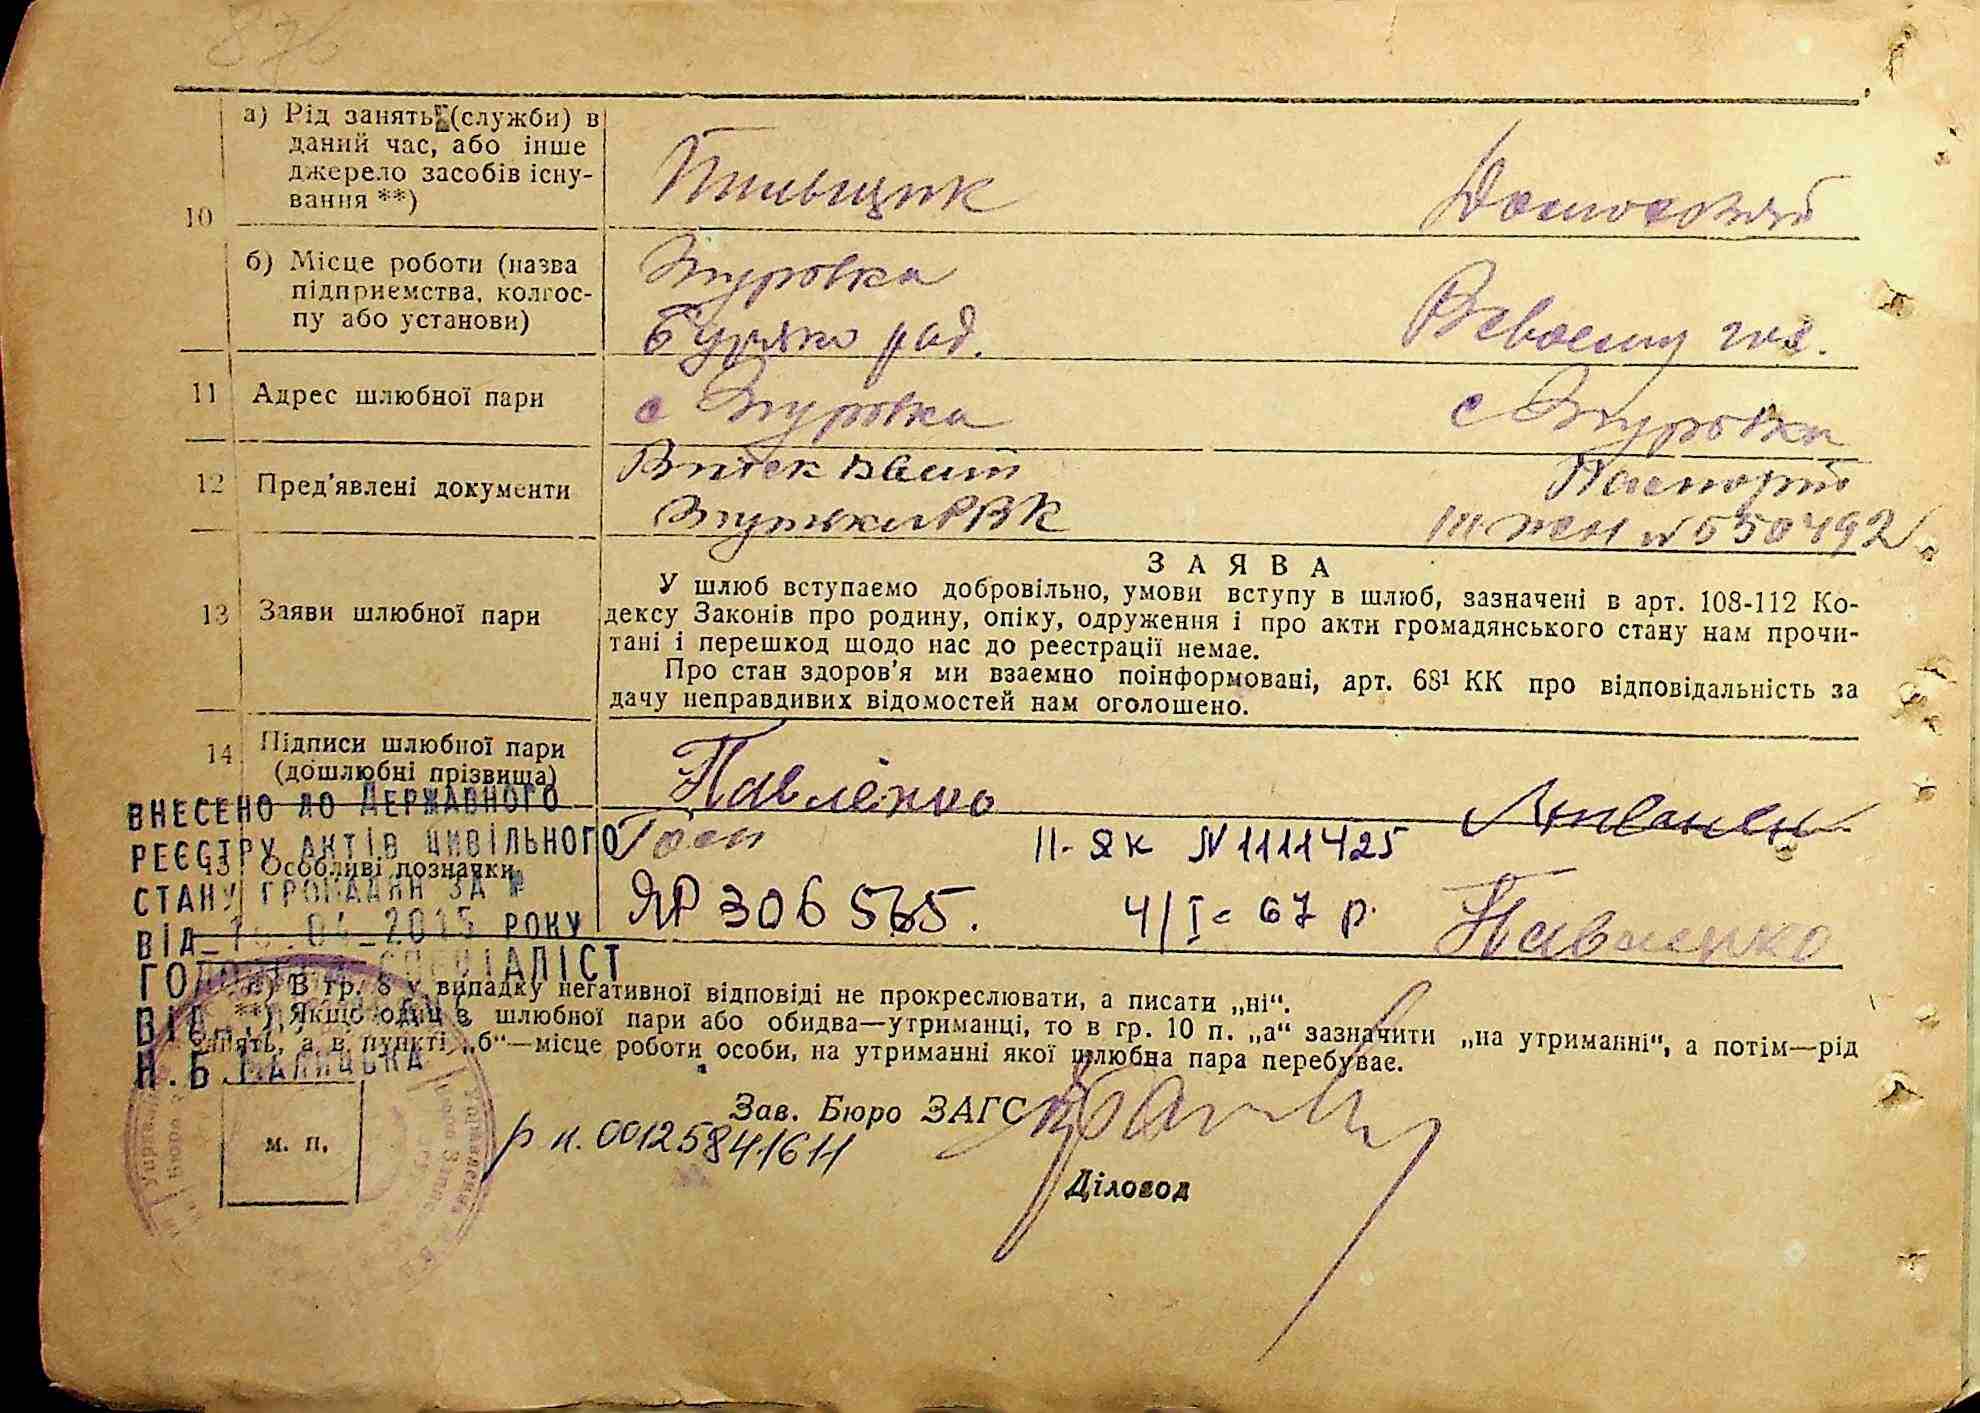 876
10 а) Рід занять (служби) в даний час, або інше джерело засобів існування **)
Пильщик
б) Місце роботи (назва підприємства, колгоспу або установи)
Згуровка
Буряко рад.
11 Адрес шлюбної пари
с Згуровка с Згуровка
12 Пред'явлені документи
Паспорт
№ 550492
13 Заяви шлюбної пари
ЗАЯВА
У шлюб вступаємо добровільно, умови вступу в шлюб, зазначені в арт. 108-112 Ко-
дексу Законів про родину, опіку, одруження і про акти громадянського стану нам прочи-
тані і перешкод щодо нас до реєстрації немає.
Про стан здоров'я ми взаємно поінформовані, арт. 68¹ КК про відповідальність за
дачу неправдивих відомостей нам оголошено.
14 Підписи шлюбної пари
(дошлюбні прізвища)
Павленко
ВНЕСЕНО ДО ДЕРЖАВНОГО
РЕЄСТРУ АКТІВ ЦИВІЛЬНОГО
Особливі дозначки
II-ЯК №1111425
СТАНУ ГРОМАДЯН ЗА №
ЯР 306565. 4/I-67 р. Павленко
ВІД 04 2015 РОКУ
СПЕЦІАЛІСТ
*) В гр. 8 у випадку негативної відповіді не прокреслювати, а писати „ні“.
**) Якщо один з шлюбної пари або обидва—утриманці, то в гр. 10 п. „а“ зазначити „на утриманні“, а потім—рід
занять, а в пункті „б“—місце роботи особи, на утриманні якої шлюбна пара перебуває.
Н.Б.
Зав. Бюро ЗАГС
р н. 00125841614
м. п.
Діловод